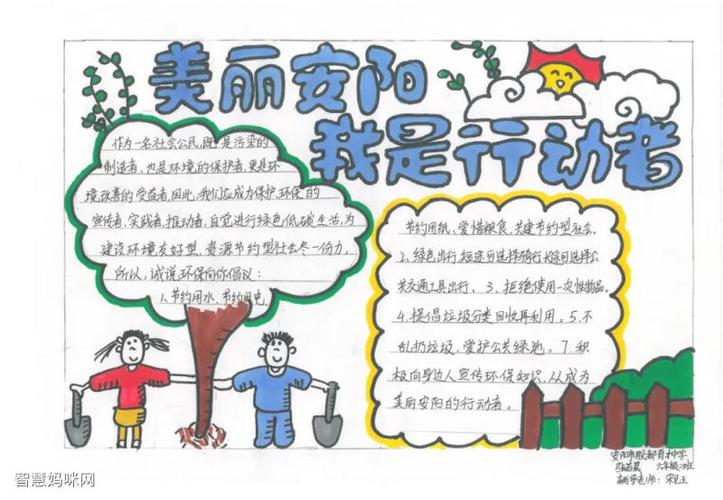 美丽安阳
我是行动者
作为一名社会公民,既是污染的
制造者,也是环境的保护者,更是环
境改善的受益者,因此,我们应成为保护环保的
宣传者,实践者,推动者,自觉进行绿色低碳生活,为
建设环境友好型、资源节约型社会尽一份力。
所以,诚说环保向你倡议:
1、节约用水、节约用电、
节约用纸、爱惜粮食,共建节约型社会。
2、绿色出行,短途可选择骑行,长途可选择公
共交通工具出行。3、拒绝使用一次性物品。
4、提倡垃圾分类回收再利用。5、不
乱扔垃圾,爱护公共绿地。7、积
极向身边人宣传环保知识,从成为
美丽安阳的行动者。
安阳市殷都育才中学
六年级
辅导老师:宋
智慧妈咪网